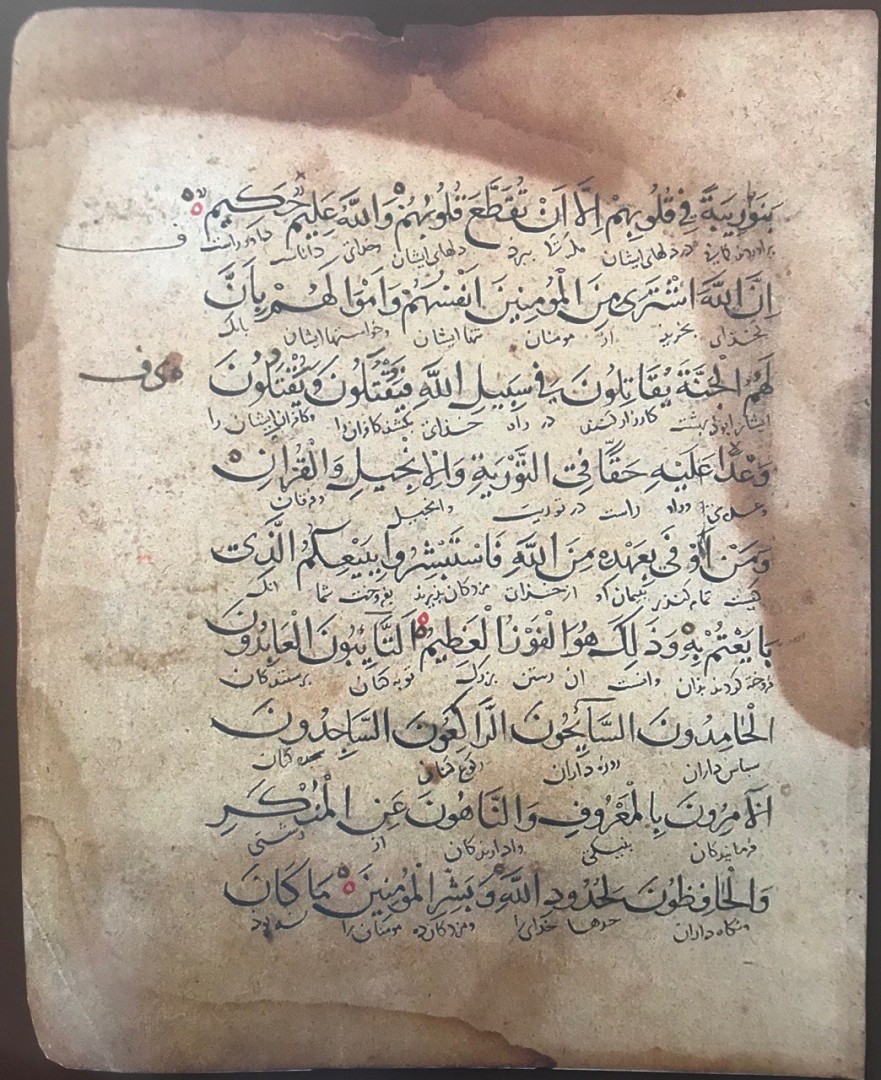 بَنَوْا رِيبَةً فِي قُلُوبِهِمْ اِلَّا اَنْ تُقَطَّعَ قُلُوبُهُمْ وَاللَّهُ عَلِيمٌ حَكِيمٌ
در دلهای ایشان ببرد دلهای ایشان وخدای داناست
ف
اِنَّ اللَّهَ اشْتَرٰى مِنَ الْمُؤْمِنِينَ اَنْفُسَهُمْ وَاَمْوَالَهُمْ بِاَنَّ
بخرید از مومنان تنها ایشان وخواستها ایشان بانک
لَهُمُ الْجَنَّةَ يُقَاتِلُونَ فِي سَبِيلِ اللَّهِ فَيَقْتُلُونَ وَيُقْتَلُونَ
بهشت کارزار کنند در راه خدای بکشند کافران را وکافران ایشان را
وَعْدًا عَلَيْهِ حَقًّا فِي التَّوْرٰيةِ وَالْاِنْجِيلِ وَالْقُرْاٰنِ
راست در توریت وانجیل وفرقان
وَمَنْ اَوْفٰى بِعَهْدِهِ مِنَ اللَّهِ فَاسْتَبْشِرُوا بِبَيْعِكُمُ الَّذِي
کیست تمام کننده‌تر بپیمان او از خدای مزدکان پذیرید بفروخت شما انک
بَايَعْتُمْ بِهِ وَذٰلِكَ هُوَ الْفَوْزُ الْعَظِيمُ اَلتَّائِبُونَ الْعَابِدُونَ
فروخته کردید بدان وانست ان رستن بزرگ توبه کنان پرستندکان
الْحَامِدُونَ السَّائِحُونَ الرَّاكِعُونَ السَّاجِدُونَ
سپاس داران روزه داران رکوع کنان سجده کنان
الْاٰمِرُونَ بِالْمَعْرُوفِ وَالنَّاهُونَ عَنِ الْمُنْكَرِ
فرمایندکان بنیکی وادارندکان از زشتی
وَالْحَافِظُونَ لِحُدُودِ اللَّهِ وَبَشِّرِ الْمُؤْمِنِينَ مَا كَانَ
ونگاه داران حدها خدای را ومزدکان ده مومنان را نه بود